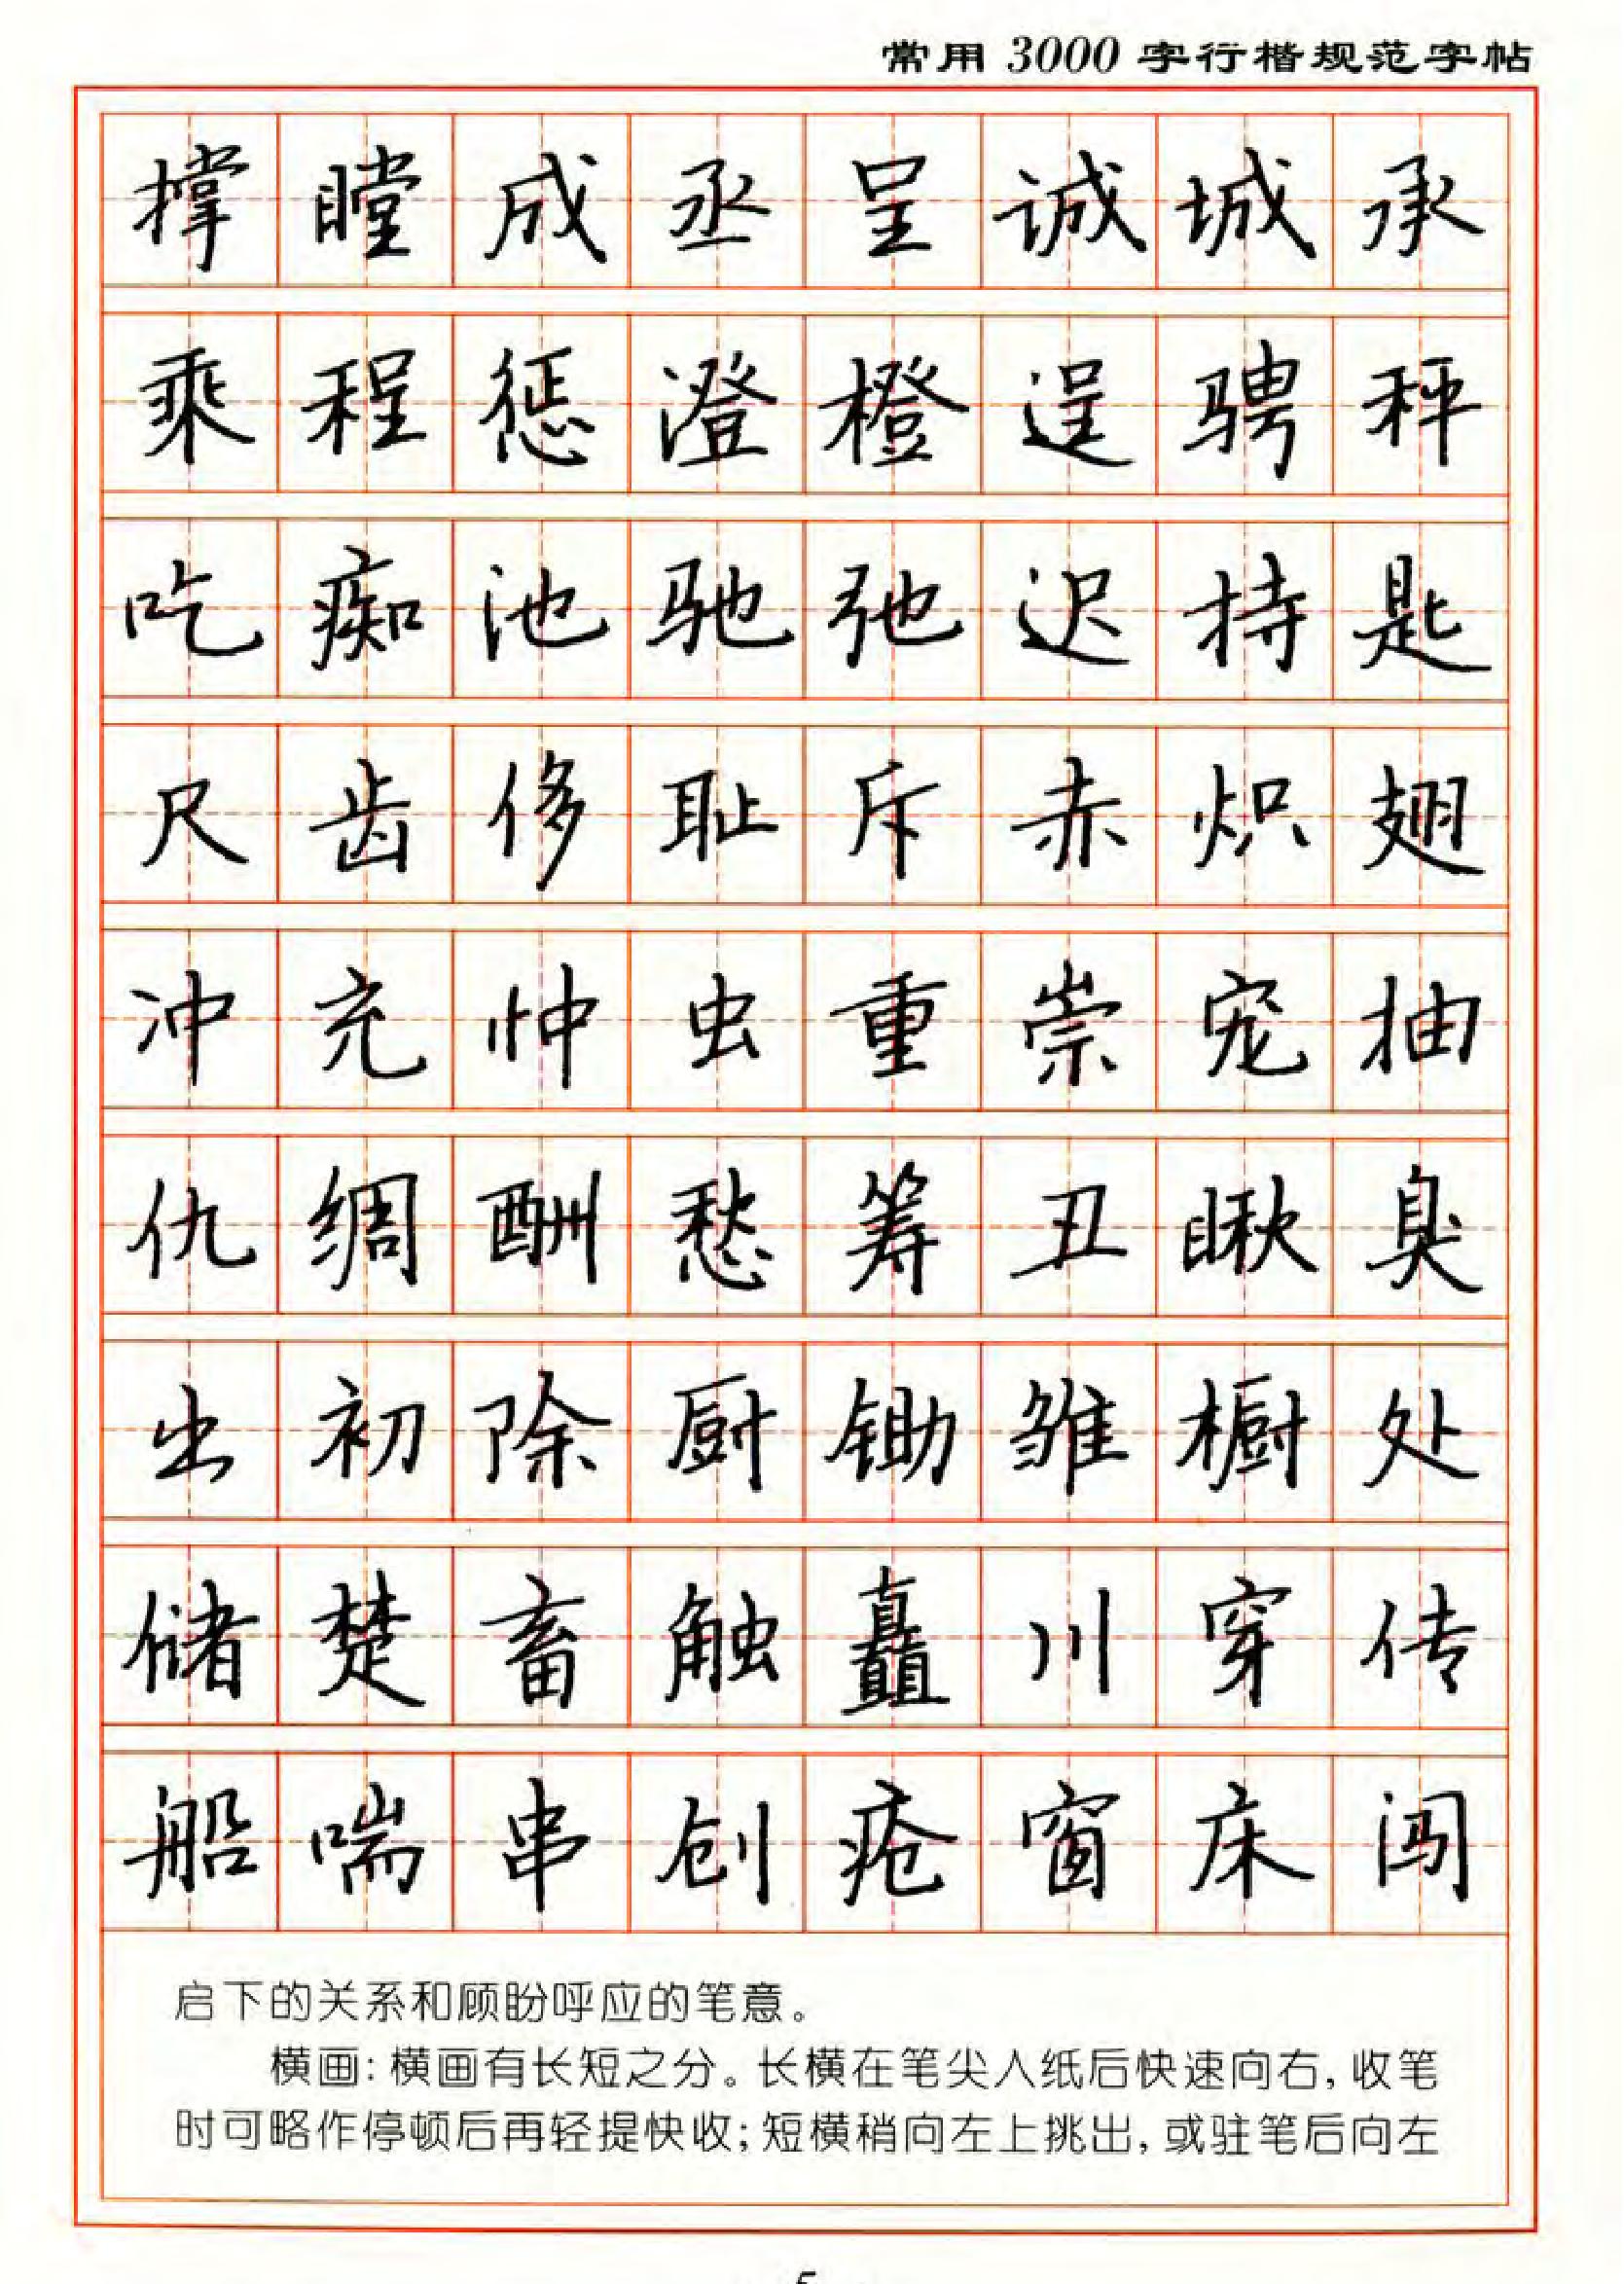 常用3000字行楷规范字帖
撑瞠成丞呈诚城承
乘程惩澄橙逞骋秤
吃痴池驰弛迟持匙
尺齿侈耻斥赤炽翅
冲充忡虫重崇宠抽
仇绸酬愁筹丑瞅臭
出初除厨锄雏橱处
储楚畜触矗川穿传
船喘串创疮窗床闯
启下的关系和顾盼呼应的笔意。
横画：横画有长短之分。长横在笔尖入纸后快速向右，收笔
时可略作停顿后再轻提快收；短横稍向左上挑出，或驻笔后向左
5